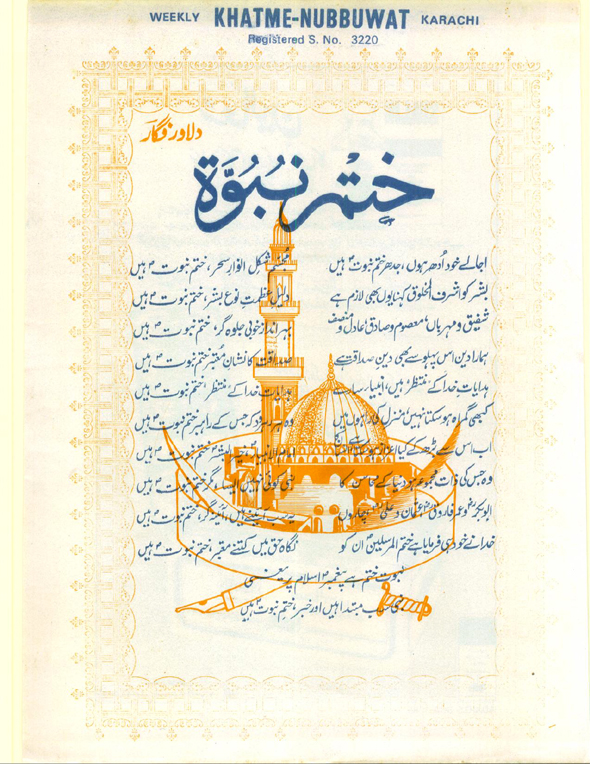 WEEKLY KHATME-NUBBUWAT KARACHI
Registered S. No. 3220
دلاور فگار
ختم نبوۃ
اجالے خود اُدھر ہوں، جدھر ختم نبوت ہیں مجسّم شکلِ انوارِ سحر، ختم نبوت ہیں
بشر کو اشرف المخلوق کہنا یوں بھی لازم ہے دلیلِ عظمتِ نوع بشر، ختم نبوت ہیں
شفیق و مہرباں، معصوم و صادق، عادل و منصف بہر انداز خوبی جلوہ گر، ختم نبوت ہیں
ہمارا دین اس پہلو سے بھی دینِ صداقت ہے صداقت کا نشانِ معتبر ختم نبوت ہیں
ہدایاتِ خدا کے منتظر ہیں، انبیاء سارے ہدایات خدا کے منتظر، ختم نبوت ہیں
کبھی گمراہ ہو سکتا نہیں منزل کا وہ کہ جس کے راہبر ختم نبوت ہیں
اب اس سے بڑھ کے کیا ختم نبوت ہیں
وہ جس کی ذات مجموعہ ہو دنیا کے کا نبی کوئی نہیں ایسا، مگر ختم نبوت ہیں
ابوبکرؓ و عمر فاروقؓ عثمانؓ و علیؓ چاروں یہ سب آئینے ہیں، آئینہ گر، ختم نبوت ہیں
خدا نے خود ہی فرمایا ہے ختم المرسلین ان کو نگاہِ حق میں کتنے معتبر، ختم نبوت ہیں
نبوت ختم ہے پیغمبرِ اسلام پر یعنی
نبی سب مبتدا ہیں اور خبر، ختم نبوت ہیں